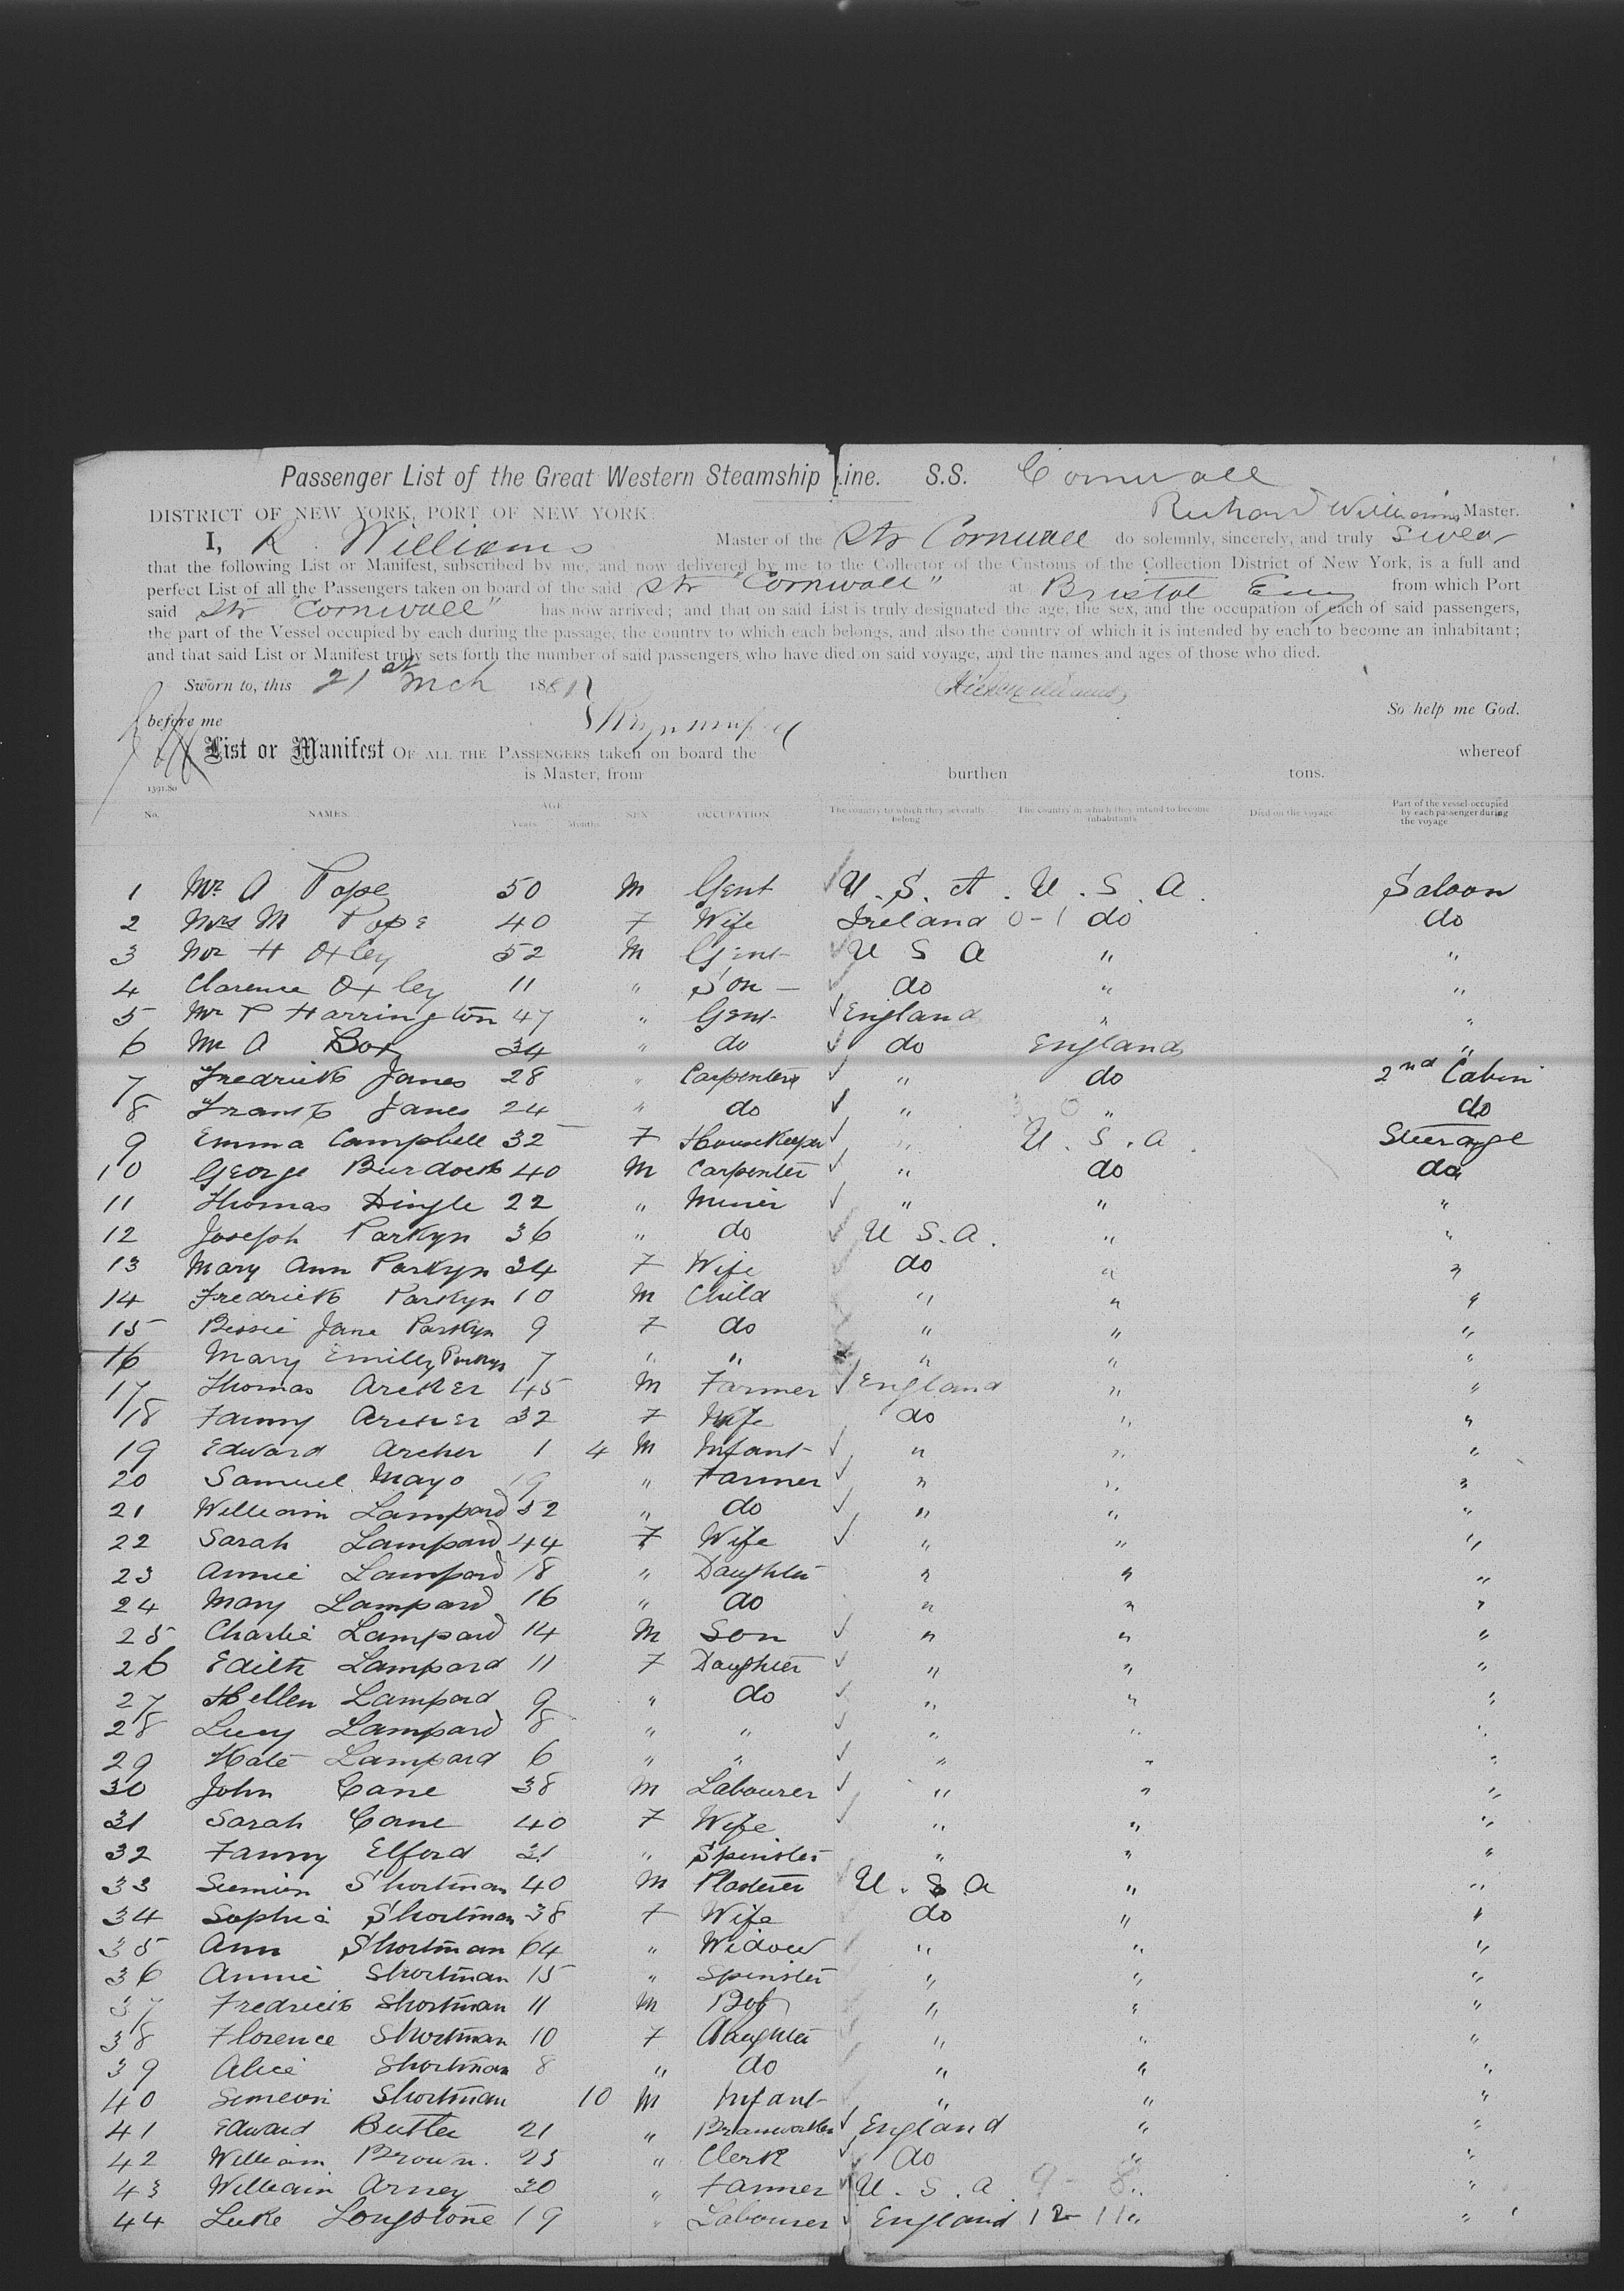 Passenger List of the Great Western Steamship Line. S.S. Cornwall
DISTRICT OF NEW YORK, PORT OF NEW YORK. Richard Williams Master.
I, R. Williams Master of the Str Cornwall do solemnly, sincerely, and truly Swear
that the following List or Manifest, subscribed by me, and now delivered by me to the Collector of the Customs of the Collection District of New York, is a full and
perfect List of all the Passengers taken on board of the said Str "Cornwall" at Bristol Eng from which Port
said Str "Cornwall" has now arrived; and that on said List is truly designated the age, the sex, and the occupation of each of said passengers,
the part of the Vessel occupied by each during the passage, the country to which each belongs, and also the country of which it is intended by each to become an inhabitant;
and that said List or Manifest truly sets forth the number of said passengers who have died on said voyage, and the names and ages of those who died.
Sworn to, this 21st Mch 1881
before me So help me God.
List or Manifest OF ALL THE PASSENGERS taken on board the whereof
is Master, from burthen tons.
1391.80
No. NAMES. AGE Years Months SEX OCCUPATION The country to which they severally belong The country in which they intend to become inhabitants Died on the voyage Part of the vessel occupied by each passenger during the voyage
1 Mr. A Pope 50 M Gent U.S.A. U.S.A. Saloon
2 Mrs M Pope 40 F Wife Ireland 0-1 do do
3 Mr H Oxley 52 M Gent U S A " "
4 Clarence Oxley 11 " Son do " "
5 Mr P Harrington 47 " Gent England " "
6 Mr A Box 34 " do do England "
7 Fredrick Janes 28 " Carpenter " do 2nd Cabin
8 Frank Janes 24 " do " " do
9 Emma Campbell 32 F HouseKeeper " U.S.A. Steerage
10 George Burdock 40 M Carpenter " do do
11 Thomas Dingle 22 " Miner " " "
12 Joseph Parkyn 36 " do U S.A. " "
13 Mary Ann Parkyn 34 F Wife do " "
14 Fredrick Parkyn 10 M Child " " "
15 Bessie Jane Parkyn 9 F do " " "
16 Mary Emilly Parkyn 7 " " " " "
17 Thomas Archer 45 M Farmer England " "
18 Fanny Archer 32 F Wife do " "
19 Edward Archer 1 4 M Infant " " "
20 Samuel Mayo 19 " Farmer " " "
21 William Lampard 52 " do " " "
22 Sarah Lampard 44 F Wife " " "
23 Annie Lampard 18 " Daughter " " "
24 Mary Lampard 16 " do " " "
25 Charlie Lampard 14 M Son " " "
26 Edith Lampard 11 F Daughter " " "
27 Hellen Lampard 9 " do " " "
28 Lucy Lampard 8 " " " " "
29 Kate Lampard 6 " " " " "
30 John Cane 38 M Labourer " " "
31 Sarah Cane 40 F Wife " " "
32 Fanny Elford 21 " Spinster " " "
33 Shortman 40 M Plasterer U.S.A " "
34 Sophia Shortman 38 F Wife do " "
35 Ann Shortman 64 " Widow " " "
36 Annie Shortman 15 " Spinster " " "
37 Fredrick Shortman 11 M Boy " " "
38 Florence Shortman 10 F daughter " " "
39 Alice Shortman 8 " do " " "
40 Simeon Shortman 10 M Infant " " "
41 Edward Butler 21 " England " "
42 William Brown. 25 " Clerk do " "
43 William Arney 30 " Farmer U.S.A 9-8 " "
44 Luke Longstone 19 " Labourer England 12-11 " "